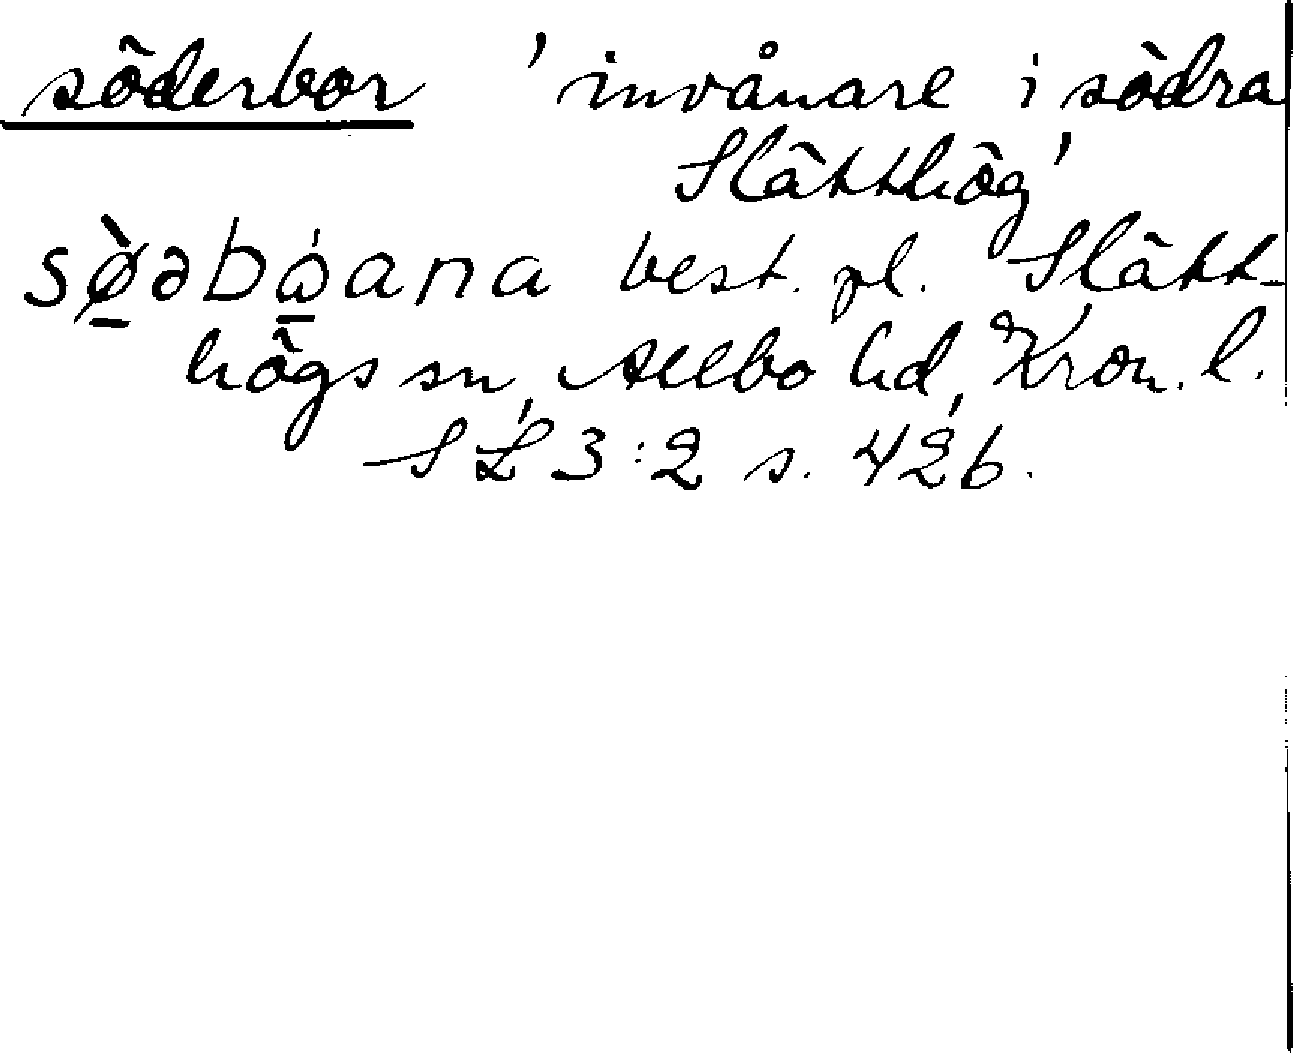 söderbor 'invånare i södra
Slätthög'
sø̠̀əbώ̠ana best. pl. Slätt-
högs sn, Allbo hd, Kron. l.
SL 3:2 s. 426.